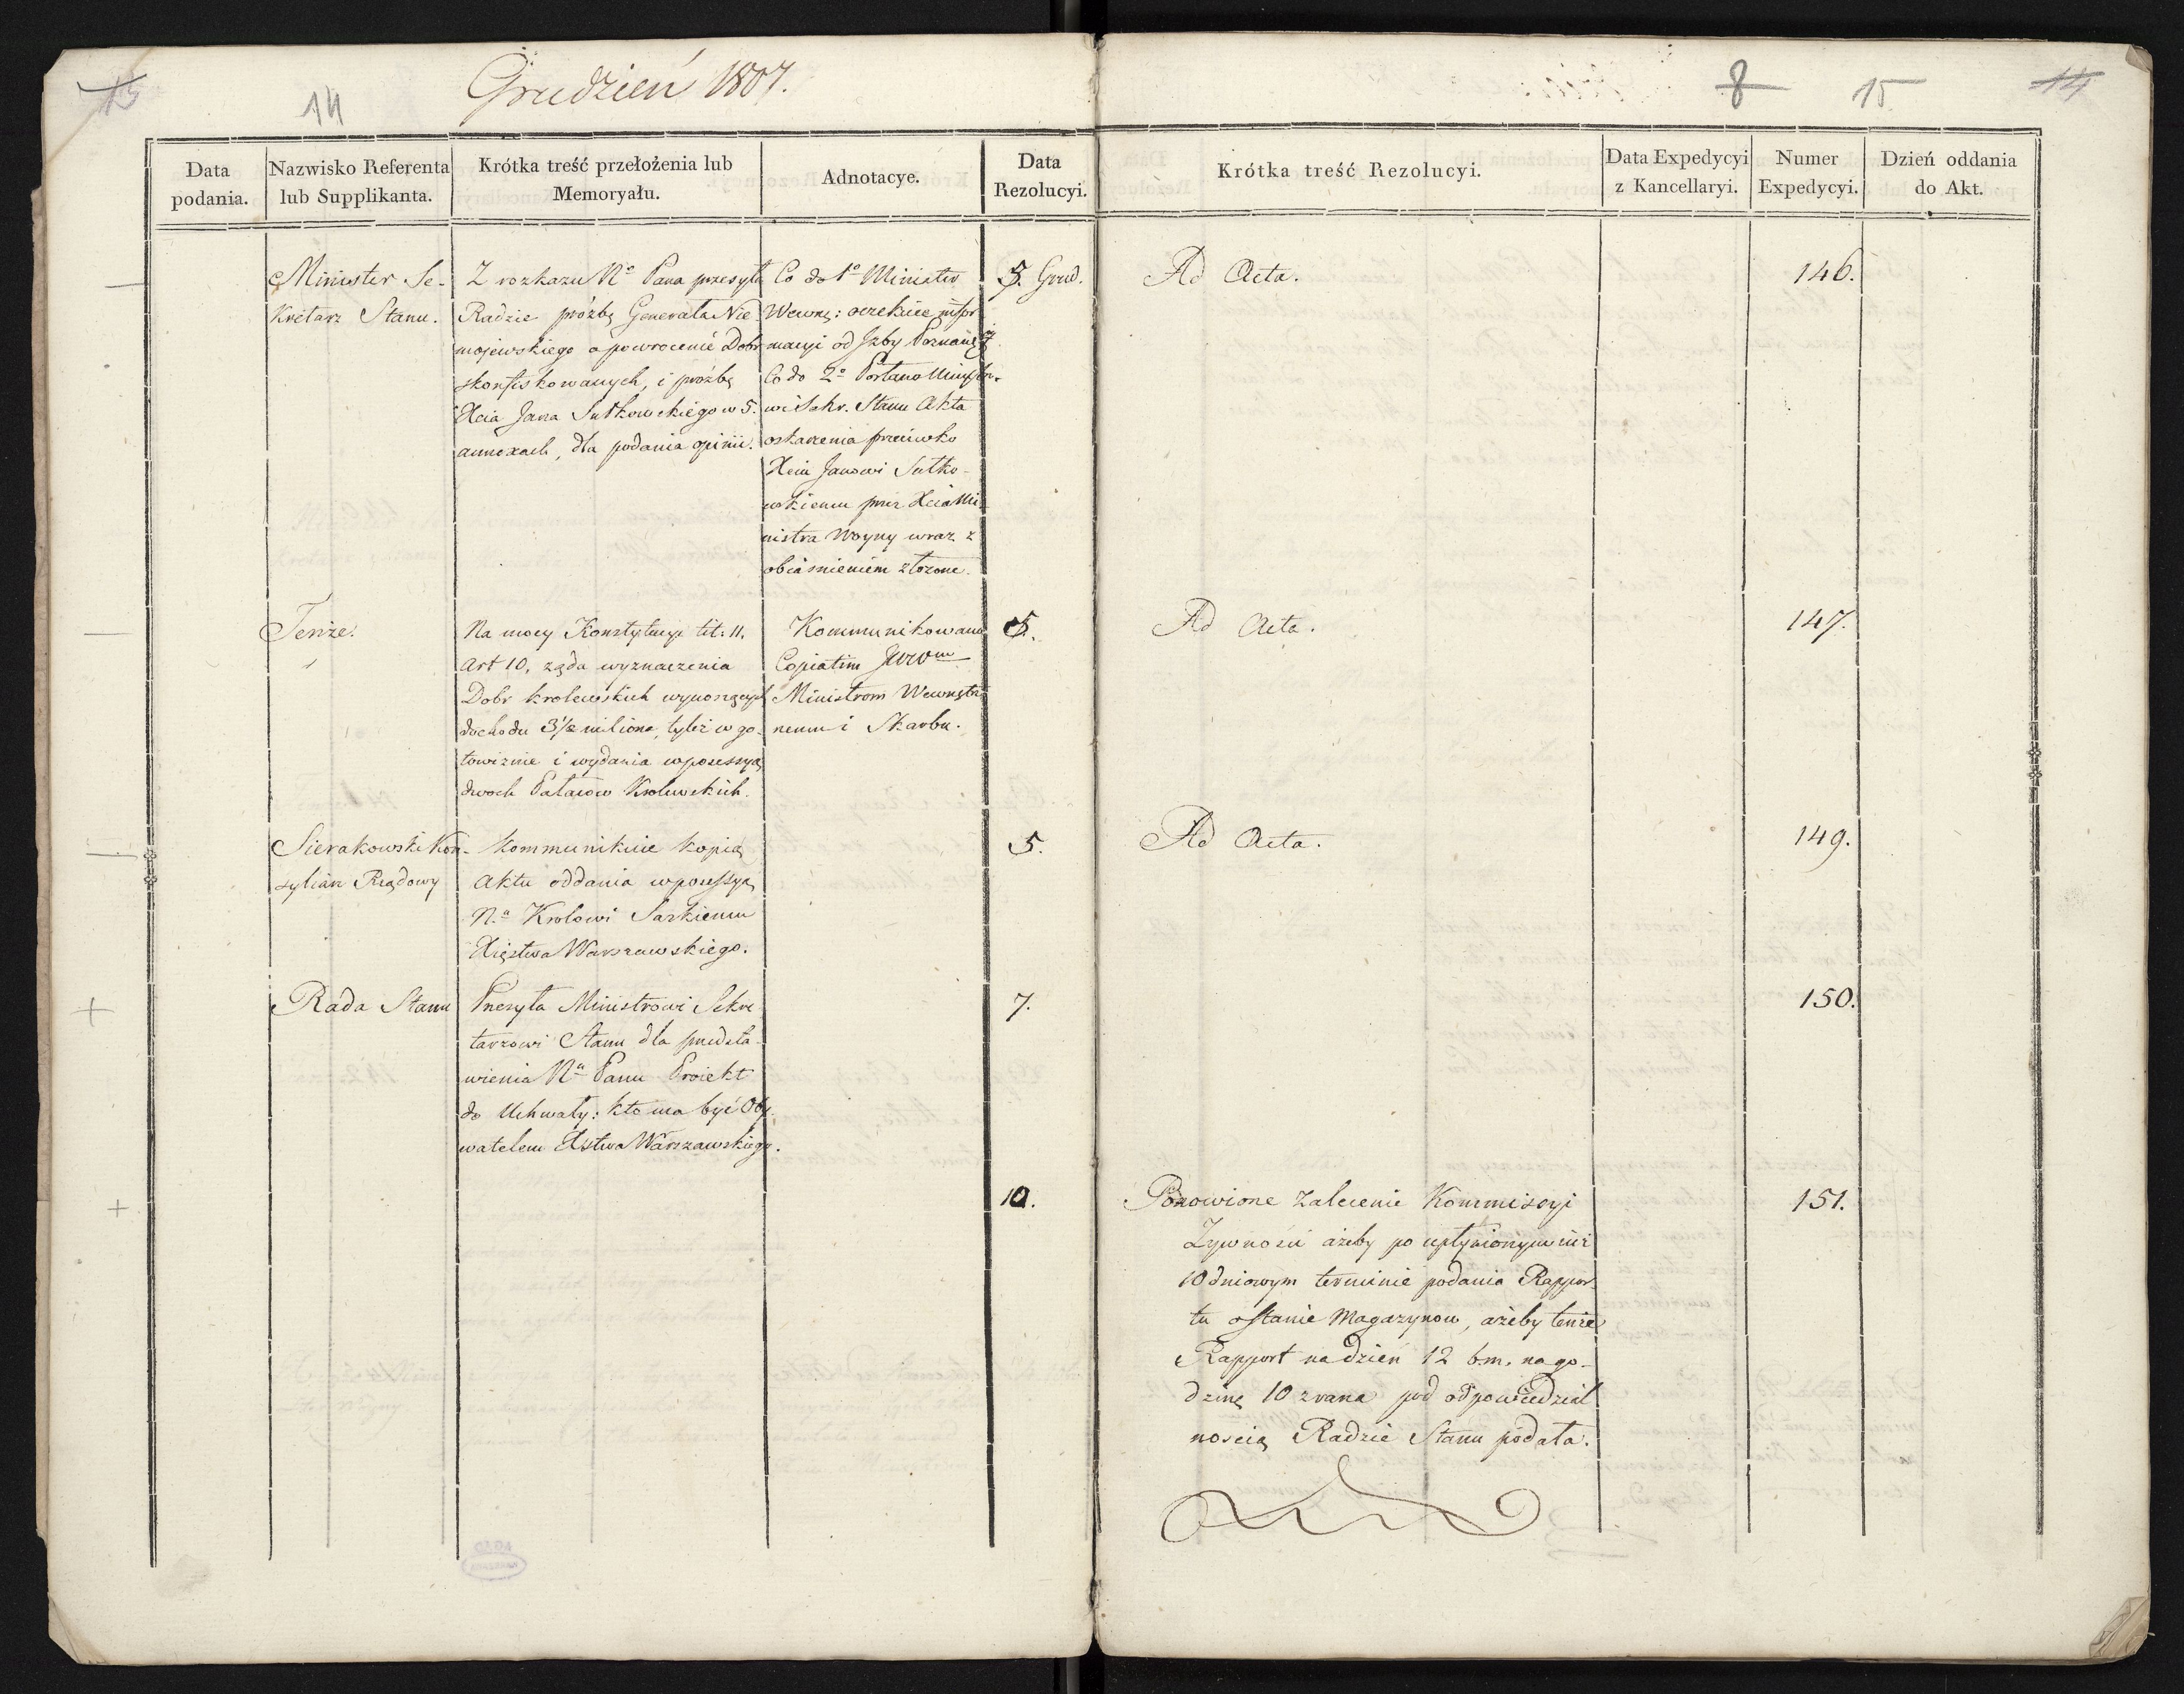 Grudzień 1807.
13
14
8
15
14
Data podania.
Nazwisko Referenta lub Supplikanta.
Krótka treść przełożenia lub Memoryału.
Adnotacye.
Data Rezolucyi.
Krótka treść Rezolucyi.
Data Expedycyi z Kancellaryi.
Numer Expedycyi.
Dzień oddania do Akt.
Minister Se-
kretarz Stanu.
Z rozkazu Nº Pana przesyła
Radzie prożbę Generała Nie
mojewskiego o powrocenie Dobr
skonfiskowanych, i prożbę
Xcia Jana Sułkowskiego w 5.
annexach, dla podania opinii.
Co do 1º Minister
Wewnę: oczekuie infor
macyi od Jzby Poznańs
Co do 2º Posłano Ministr.
wi Sekr. Stanu Akta
oskarżenia przeciwko
Xciu Janowi Sułko-
wskiemu przez Xcia Mi
nistra Woyny wraz z
obiaśnieniem złożone.
5. Grud.
Ad Acta.
146.
Tenże.
Na mocy Konstytucyi tit: 11.
Art 10, żąda wyznaczenia
Dobr krolewskich wynoszących
dochodu 3½ miliona, tyleż w go-
towiznie i wydania w possessyą
dwoch Pałacow Krolewskich.
Kommunikowano
Copiatim
Ministrom Wewnętrz
nemu i Skarbu.
5.
Ad Acta.
147.
Sierakowski Kon-
syliarz Rządowy
Kommunikuie kopią
Aktu oddania w possessyą
N.ª Krolowi Saskiemu
Xięstwa Warszawskiego.
5.
Ad Acta.
149.
Rada Stanu
Przesyła Ministrowi Sekre
tarzowi Stanu dla przedsta-
wienia Nª Panu Proiekt
do Uchwały: kto ma być Oby
watelem Xstwa Warszawskiego.
7.
150.
10.
Ponowione Zalecenie Kommissyi
Żywności ażeby po upłynionym iuż
10 dniowym terminie podania Rappor
tu o stanie Magazynow, ażeby tenże
Rapport na dzień 12 b.m. na go-
dzinę 10 z rana pod odpowiedzial
nością Radzie Stanu podała.
151.